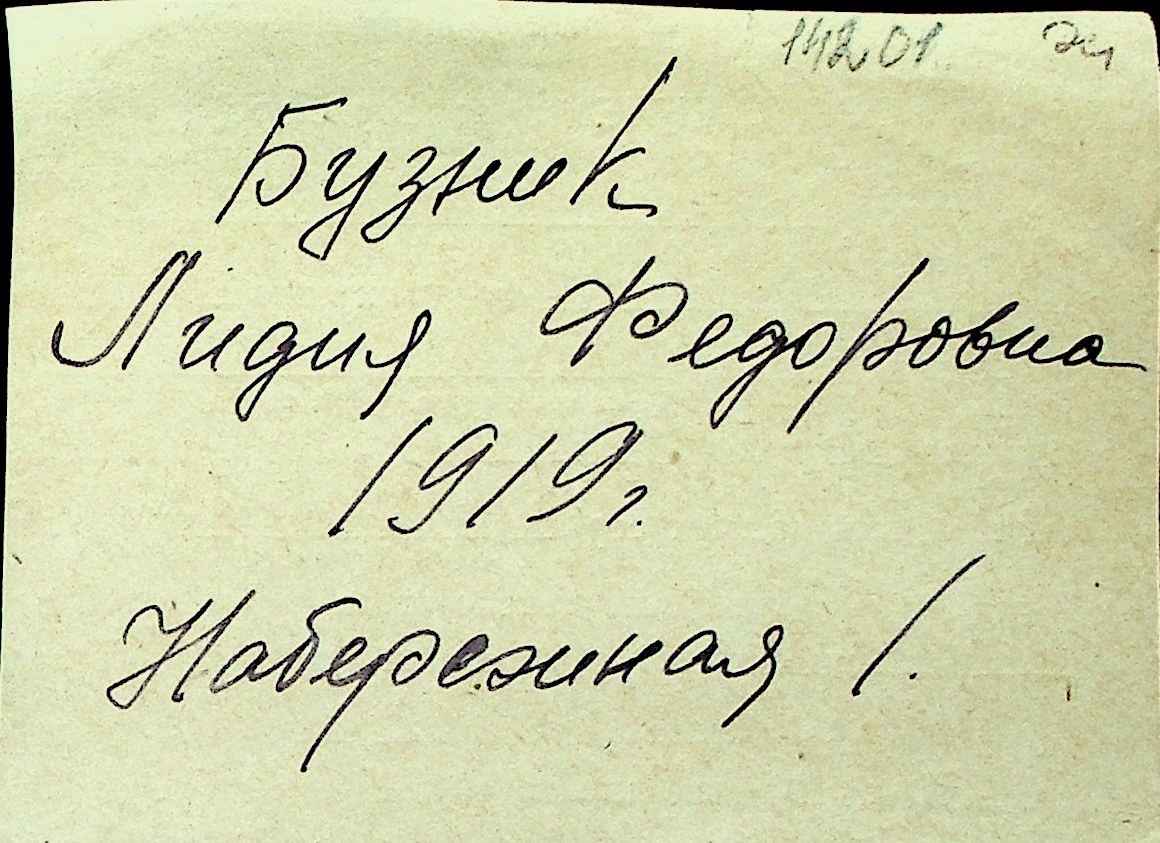 14201
Бузник
Лидия Федоровна
1919г.
Набережная 1.